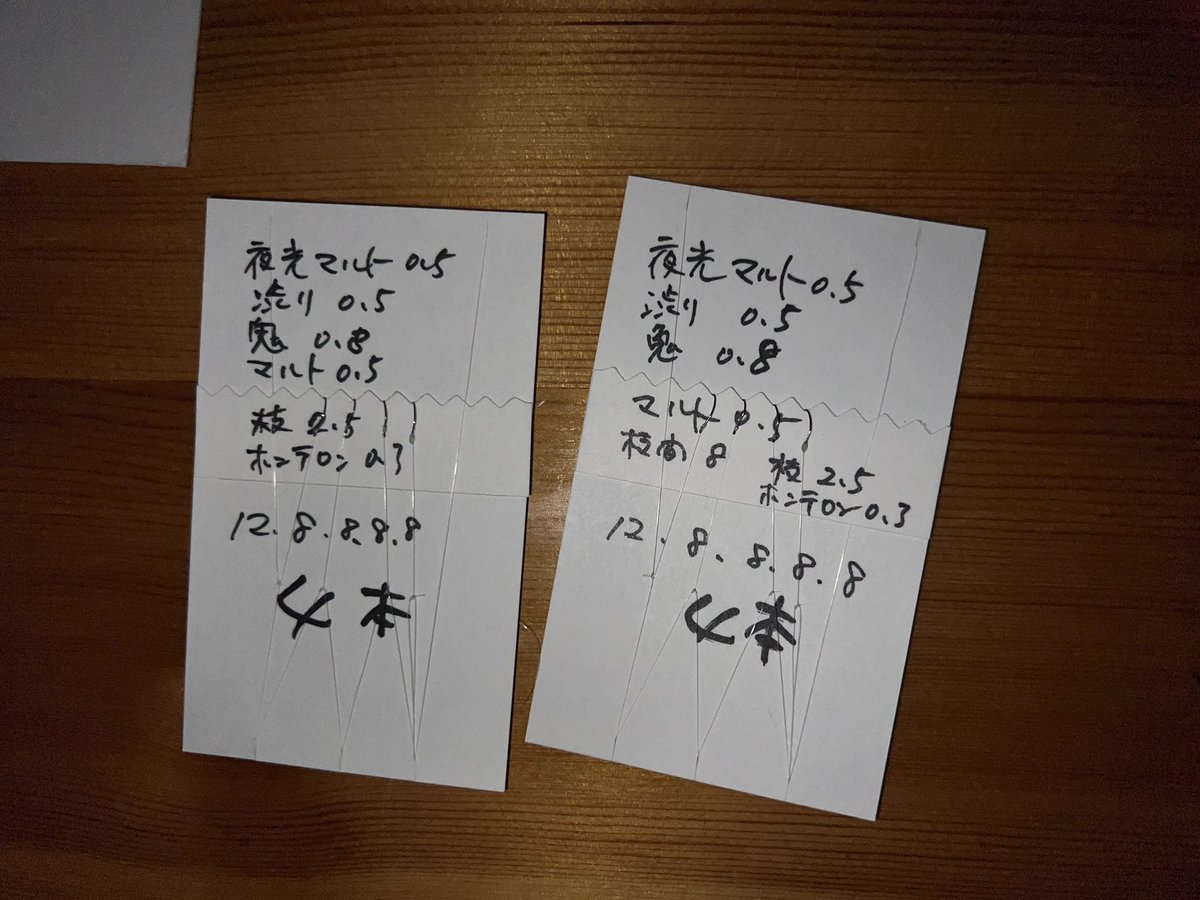 夜光マルト 0.5
渋り 0.5
鬼 0.8
マルト 0.5
枝 2.5
ホンテロン 0.3
12.8.8.8.8
4本
夜光マルト 0.5
渋り 0.5
鬼 0.8
マルト 0.5
枝間 8
枝 2.5
ホンテロン 0.3
12.8.8.8.8
4本